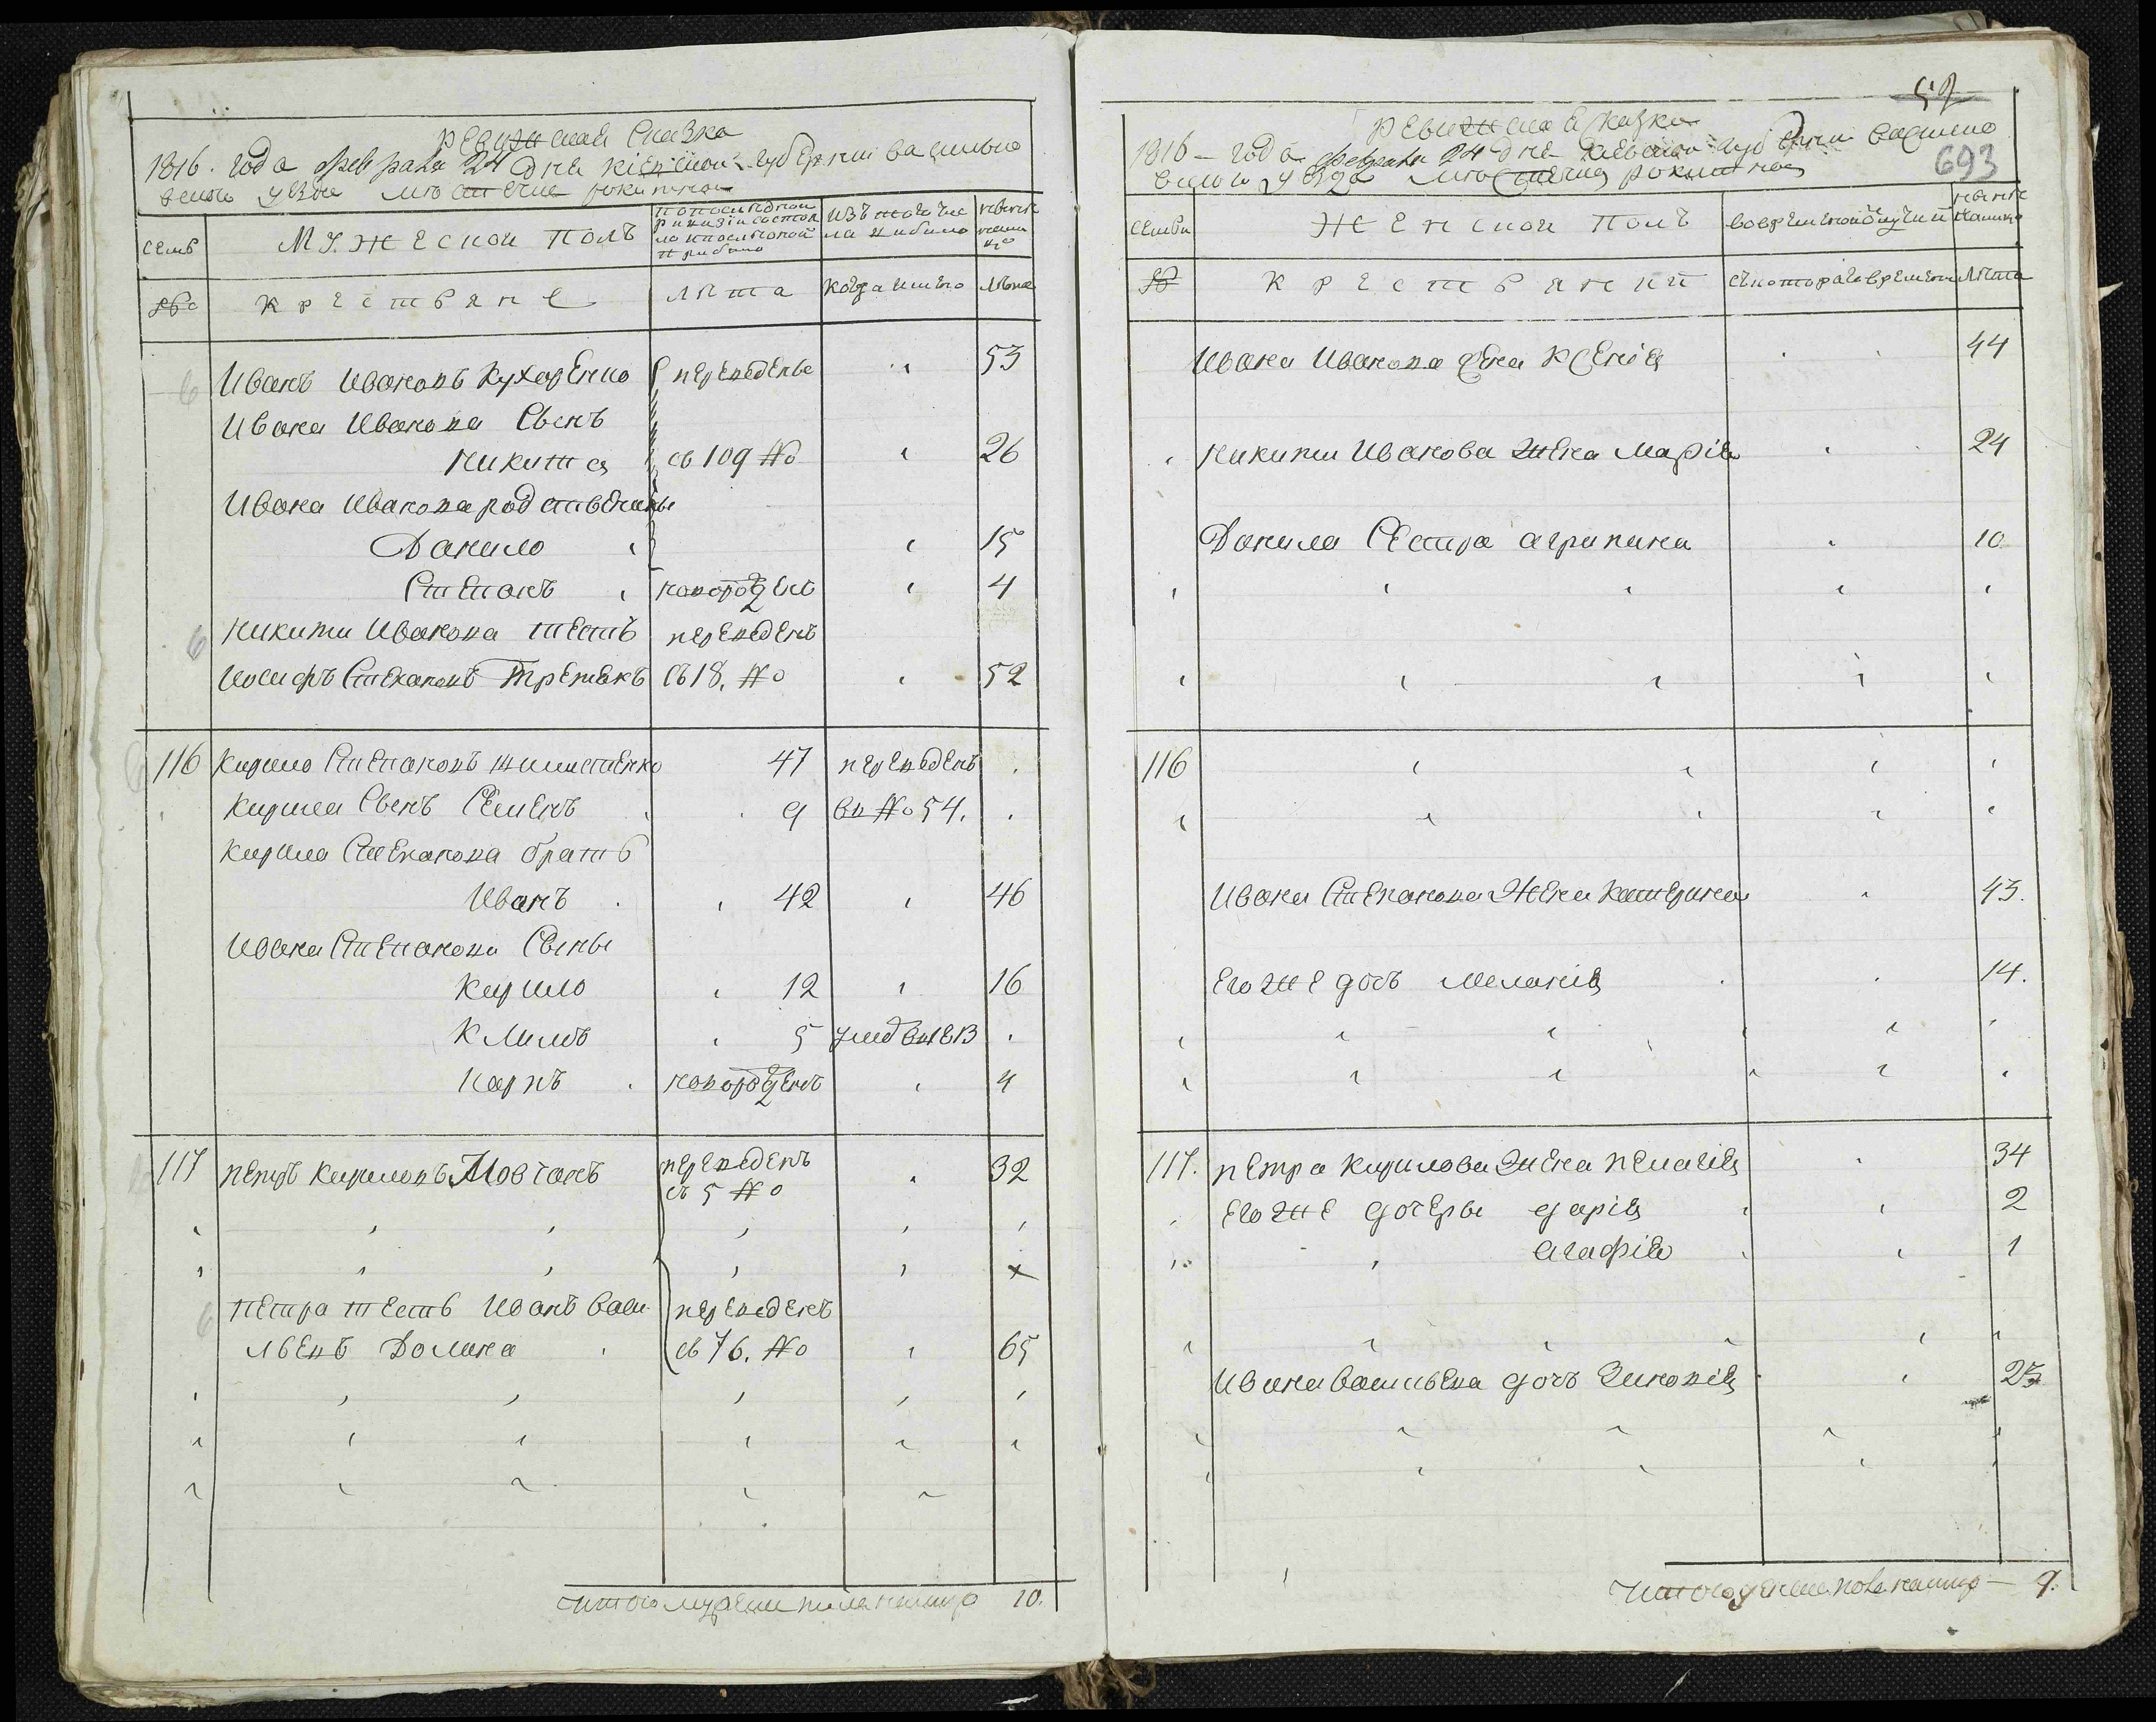 Ревижская Сказка
1816. года февраля 24 дня кіевской губерніи василько
уезда местечка рокитной
семьи
МУЖЕСКОЙ ПОЛЪ
по последней ревизіи состояло и после оной прибыло
изъ того числа выбыло
ныне на лицо
№
крестьяне
лета
когда именно
лета
Иванъ Ивановъ Кухаренко переведены " 53
Ивана Иванова Сынъ
Никита съ 109 № " 26
Ивана Иванова родственики
Данило " 15
Степанъ новорожденъ " 4
Никиты Иванова тесть переведенъ
Иосифъ Степановъ Третякъ съ 18. № " 52
116 Кирило Степановъ 47 переведенъ
Кирила Сынъ Семенъ 9 въ № 54.
Кирила Степанова братъ
Иванъ 42 " 46
Ивана Степанова Сыны
Кирило 12 " 16
Климъ 5 умер въ 1813
Карпъ новорожденъ " 4
117 петръ Кириловъ Мовчанъ переведенъ
съ 5 № " 32
петра тесть Иванъ Васи- переведенъ
льевъ Долина съ 76. № " 65
итого мужеска пола налицо 10.
59
693
Ревижская Сказка
1816 – года февраля 24 дня Киевской губерніи Василько
уезда местечка рокитной
семьи
ЖЕНСКОЙ ПОЛЪ
во временной отлучки
ныне налицо
№
крестьянки
съ котораго времени
лета
Ивана Иванова жена Ксенія 44
Никиты Иванова Жена Марія 24
Данила Сестра агрипина 10
116
Ивана Степанова Жена Катерина 43.
Его же дочь Меланія 14.
117. петра Кирилова Жена пелагія 34
Его же дочеры дарія 2
агафія 1
Ивана Васильева дочь Зиновія 25
итого женска пола налицо – 9.